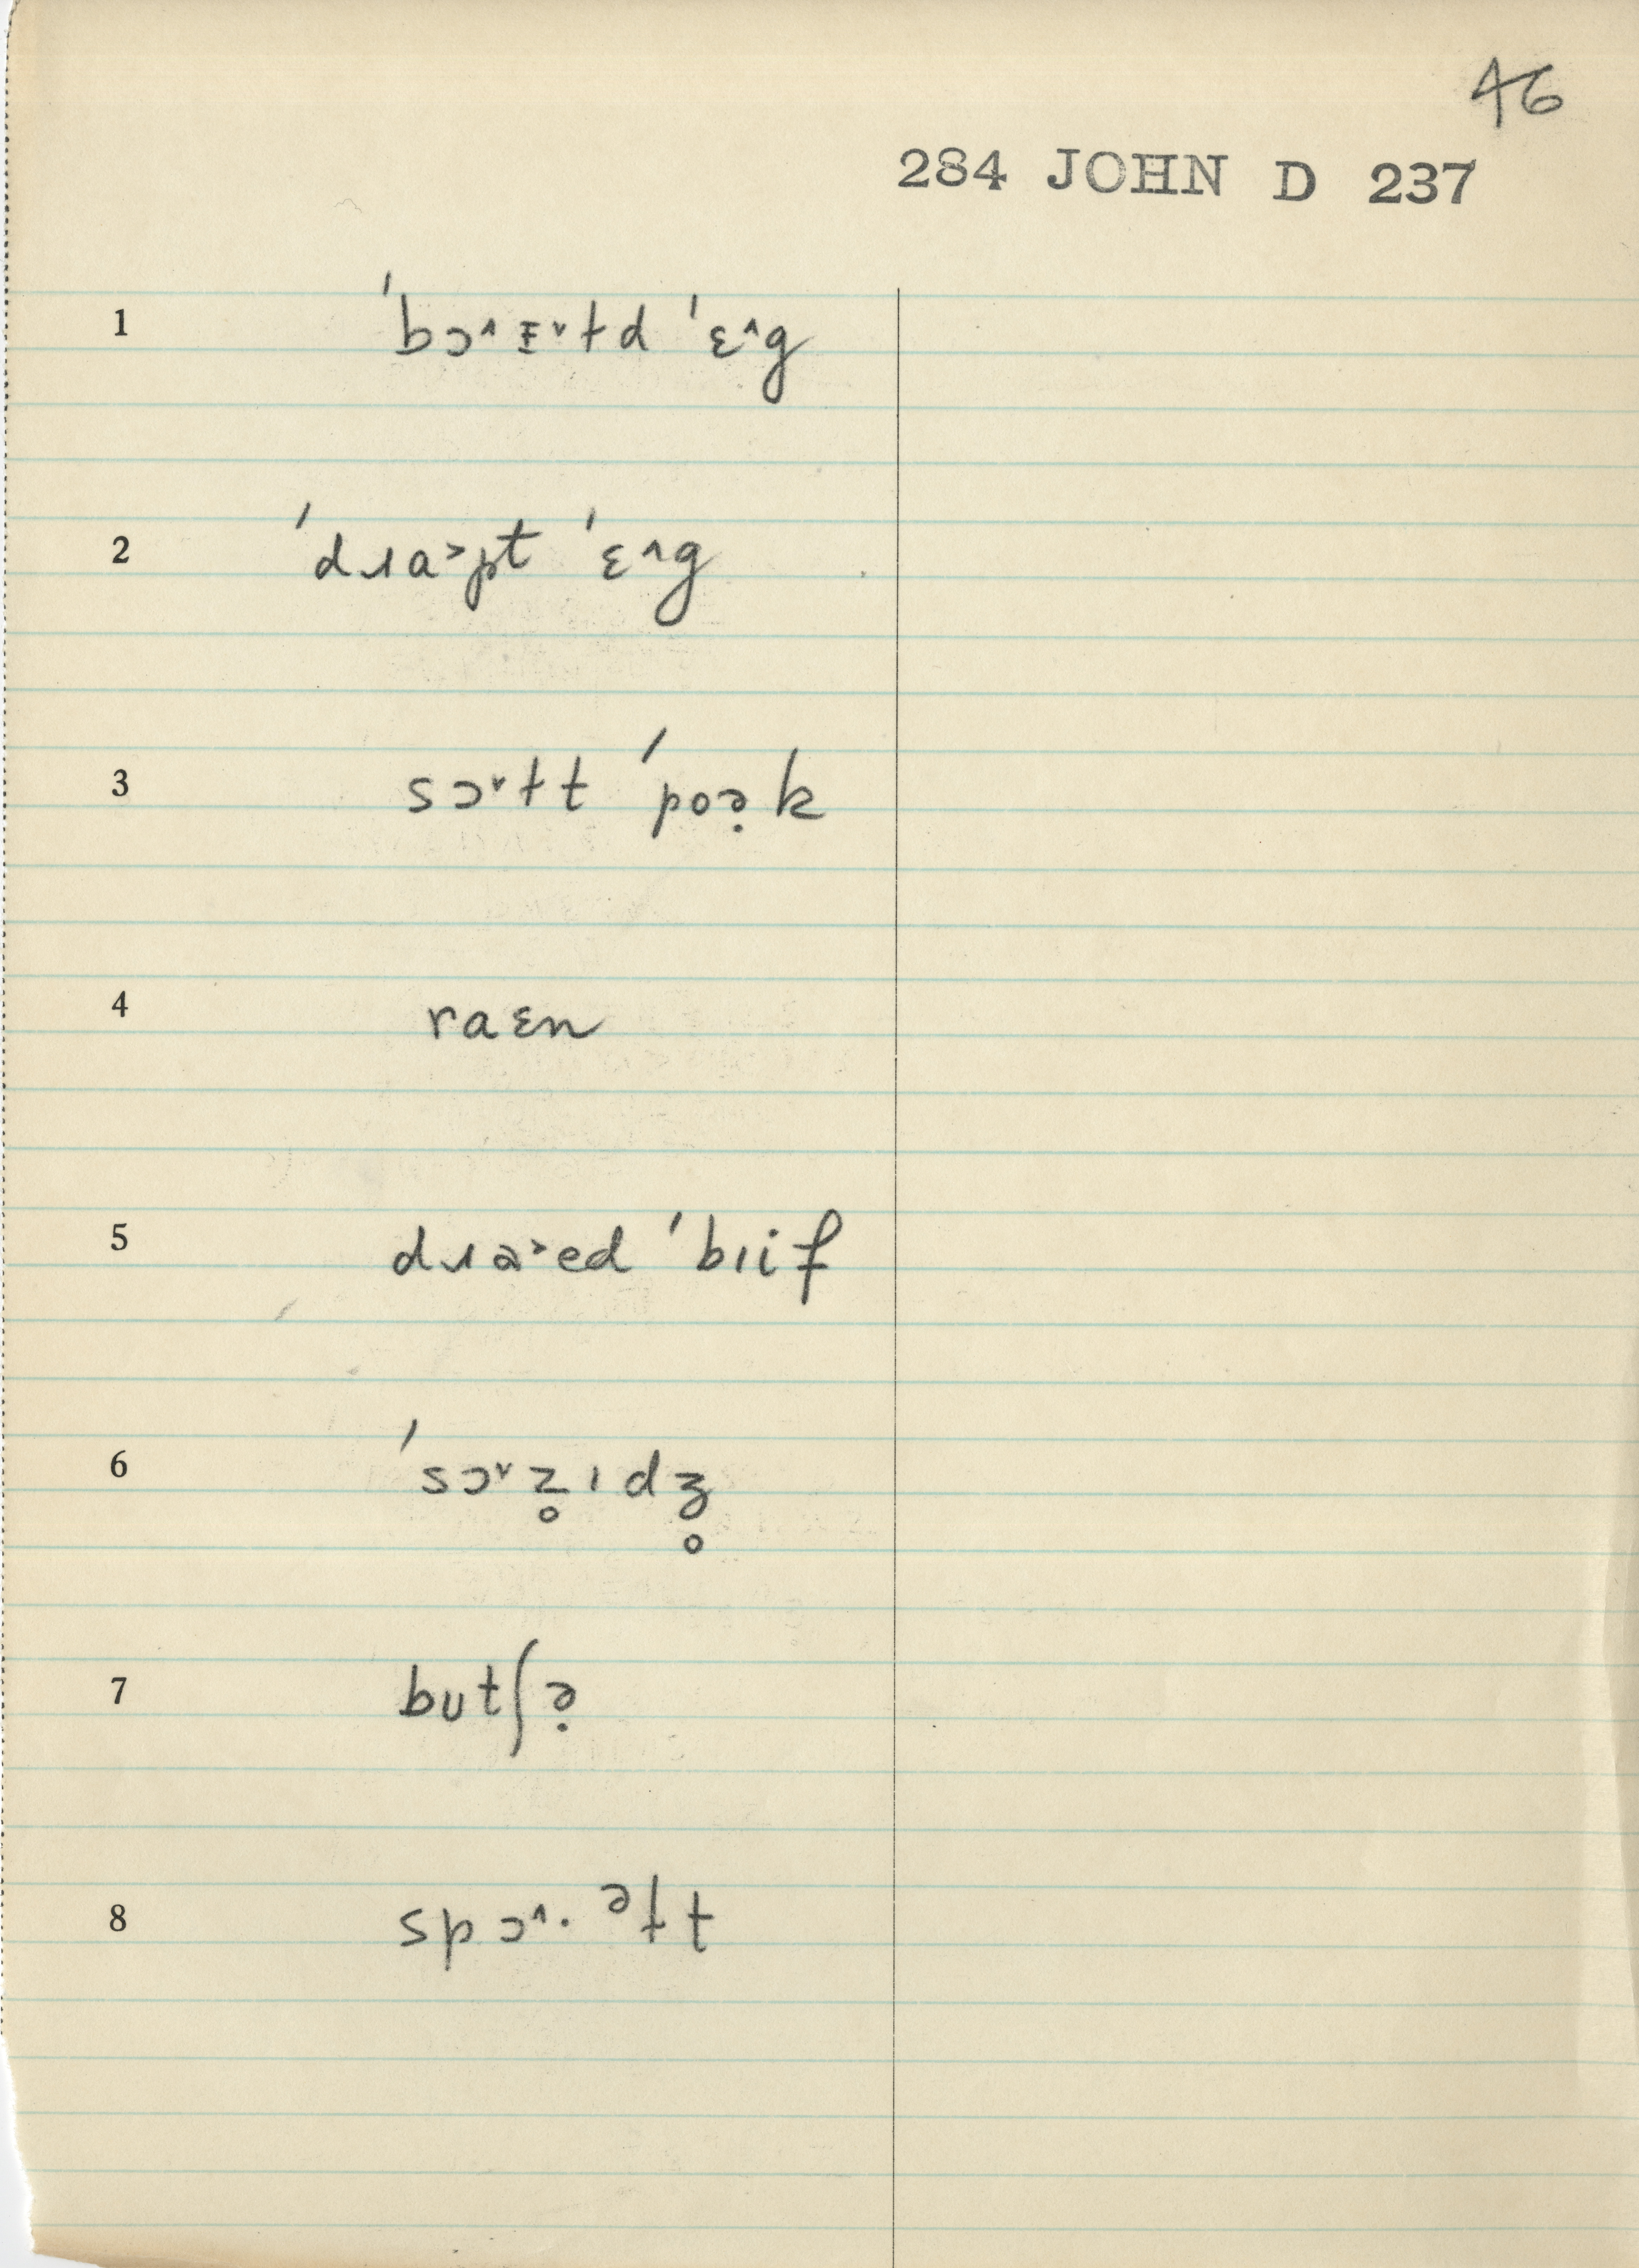 46
284 JOHN D 237
1 ˈbɔ˄ɪ˅td ˈɛ˄g
2 ˈdɹa˃pt ˈɛ˄g
3 sɔ˅tt ˈpoə̣k
4 raɛn
5 dɹa˃ed ˈbɪif
6 ˈsɔ˅z̥ɪdʒ̊
7 butʃə̣
8 spɔ˄. ᵊɫt